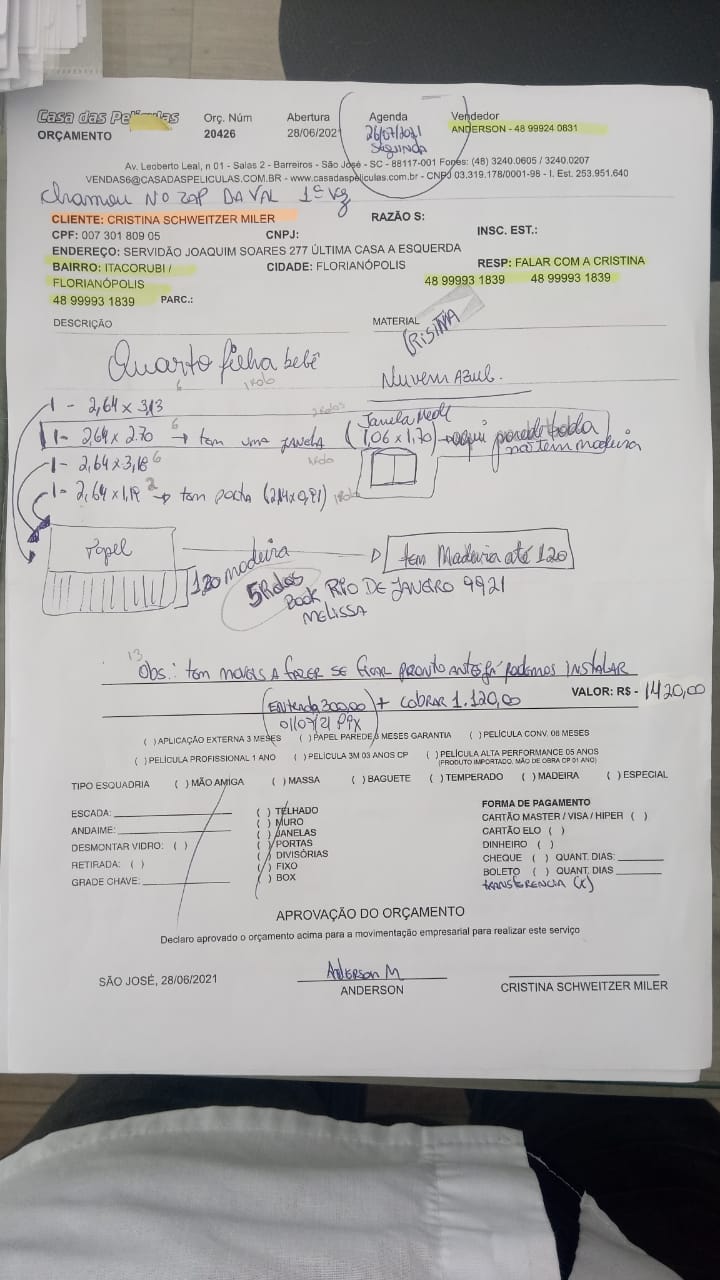 Casa das Películas Orç. Núm Abertura Agenda Vendedor
ORÇAMENTO 20426 28/06/2021 26/07/2021 ANDERSON - 48 99924 0631
SEGUNDA
Av. Leoberto Leal, n 01 - Salas 2 - Barreiros - São José - SC - 88117-001 Fones: (48) 3240.0605 / 3240.0207
VENDAS6@CASADASPELICULAS.COM.BR - www.casadaspeliculas.com.br - CNPJ 03.319.178/0001-98 - I. Est. 253.951.640
Chamou NO ZAP DA VAL 1ª Vez
CLIENTE: CRISTINA SCHWEITZER MILER RAZÃO S:
CPF: 007 301 809 05 CNPJ: INSC. EST.:
ENDEREÇO: SERVIDÃO JOAQUIM SOARES 277 ÚLTIMA CASA A ESQUERDA
BAIRRO: ITACORUBI / CIDADE: FLORIANÓPOLIS RESP: FALAR COM A CRISTINA
FLORIANÓPOLIS 48 99993 1839 48 99993 1839
48 99993 1839 PARC.:
DESCRIÇÃO MATERIAL
CRISTINA
Quarto filha bebê
Nuvem Azul.
6 1 Rolo
1 - 2,64 x 3,13
2 Rolos Janela Mede
1 - 2,64 x 2.70 6 → tem uma JANELA (1,06 x 1,70) → aqui parede toda
não tem madeira
1 - 2,64 x 3,18 6 1 Rolo
1 - 2,64 x 1,19 2 → tem porta (2,14 x 0,91) 1 Rolo
Papel
1,20 madeira tem Madeira até 1.20
5 Rolos
Book RIO DE JANEIRO 9921
MELISSA
13
Obs.: tem moveis A fazer SE ficar pronto antes já podemos INSTALAR
VALOR: R$ - 1420,00
(Entrada 300,00) + COBRAR 1.120,00
01/07/21 PIX
( ) APLICAÇÃO EXTERNA 3 MESES ( ) PAPEL PAREDE 3 MESES GARANTIA ( ) PELÍCULA CONV. 06 MESES
( ) PELÍCULA PROFISSIONAL 1 ANO ( ) PELÍCULA 3M 03 ANOS CP ( ) PELÍCULA ALTA PERFORMANCE 05 ANOS
(PRODUTO IMPORTADO, MÃO DE OBRA CP 01 ANO)
TIPO ESQUADRIA ( ) MÃO AMIGA ( ) MASSA ( ) BAGUETE ( ) TEMPERADO ( ) MADEIRA ( ) ESPECIAL
ESCADA:
ANDAIME:
DESMONTAR VIDRO: ( )
RETIRADA: ( )
GRADE CHAVE:
( ) TELHADO
( ) MURO
( ) JANELAS
( ) PORTAS
( ) DIVISÓRIAS
( ) FIXO
( ) BOX
FORMA DE PAGAMENTO
CARTÃO MASTER / VISA / HIPER ( )
CARTÃO ELO ( )
DINHEIRO ( )
CHEQUE ( ) QUANT. DIAS:
BOLETO ( ) QUANT. DIAS
TRANSFERENCIA (X)
APROVAÇÃO DO ORÇAMENTO
Declaro aprovado o orçamento acima para a movimentação empresarial para realizar este serviço
SÃO JOSÉ, 28/06/2021
Anderson M
ANDERSON
CRISTINA SCHWEITZER MILER